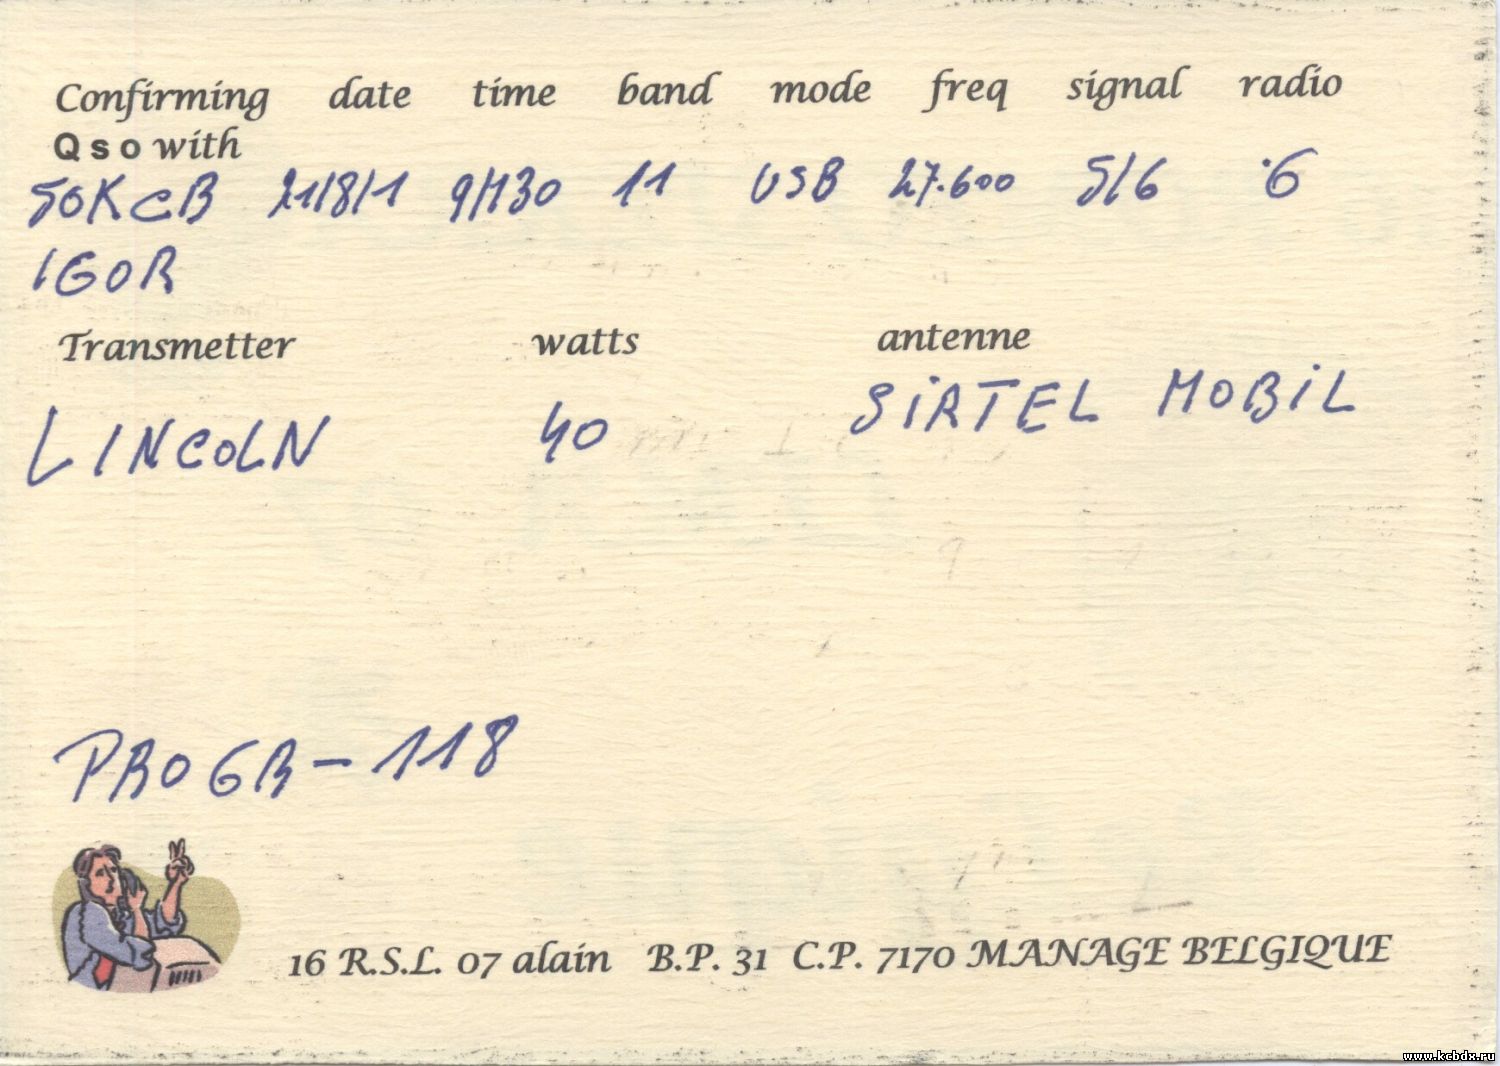 Confirming date time band mode freq signal radio
Qso with
50KCB 21/8/1 9/H30 11 USB 27.600 5/6 6
IGOR
Transmetter watts antenne
LINCOLN 40 SIRTEL MOBIL
PROGR-118
16 R.S.L. 07 alain B.P. 31 C.P. 7170 MANAGE BELGIQUE
www.kcbdx.ru